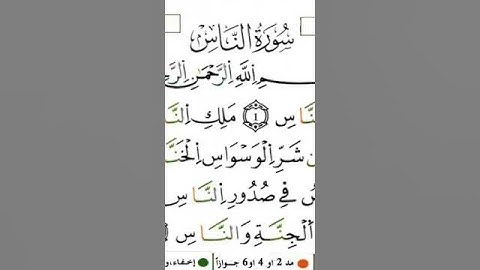 سُورَةُ النَّاسِ
اِ۬للَّهِ اِ۬لرَّحْمَٰنِ اِ۬لرَّ
اسِ ١ مَلِكِ اِ۬لنَّا
شَرِّ اِ۬لْوَسْوَاسِ اِ۬لْخَنَّا
فِي صُدُورِ اِ۬لنَّاسِ
اَ۬لْجِنَّةِ وَالنَّاسِ
مد 2 او 4 او 6 جوازاً إخفاء، و